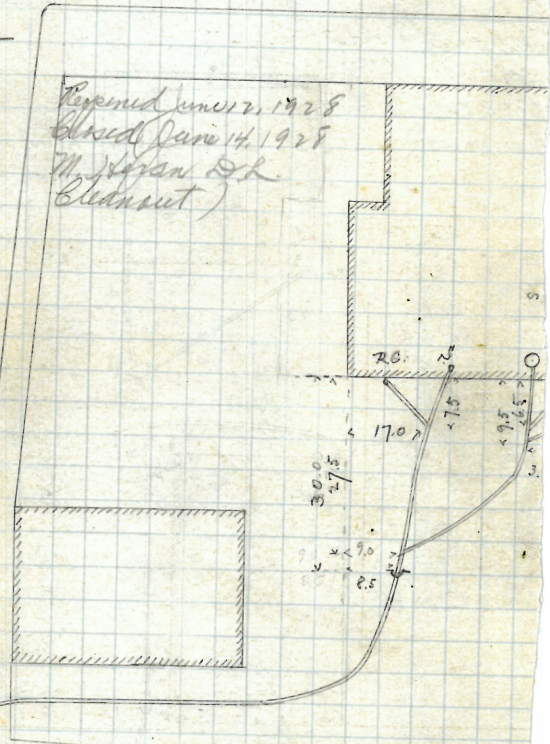 Reopened June 12, 1928
Closed June 14, 1928
M. Horan D L
Cleanout)
S
R.C.
2
7.5
9.5
6.5
17.0
3.
30.0
27.5
9.0
8.5